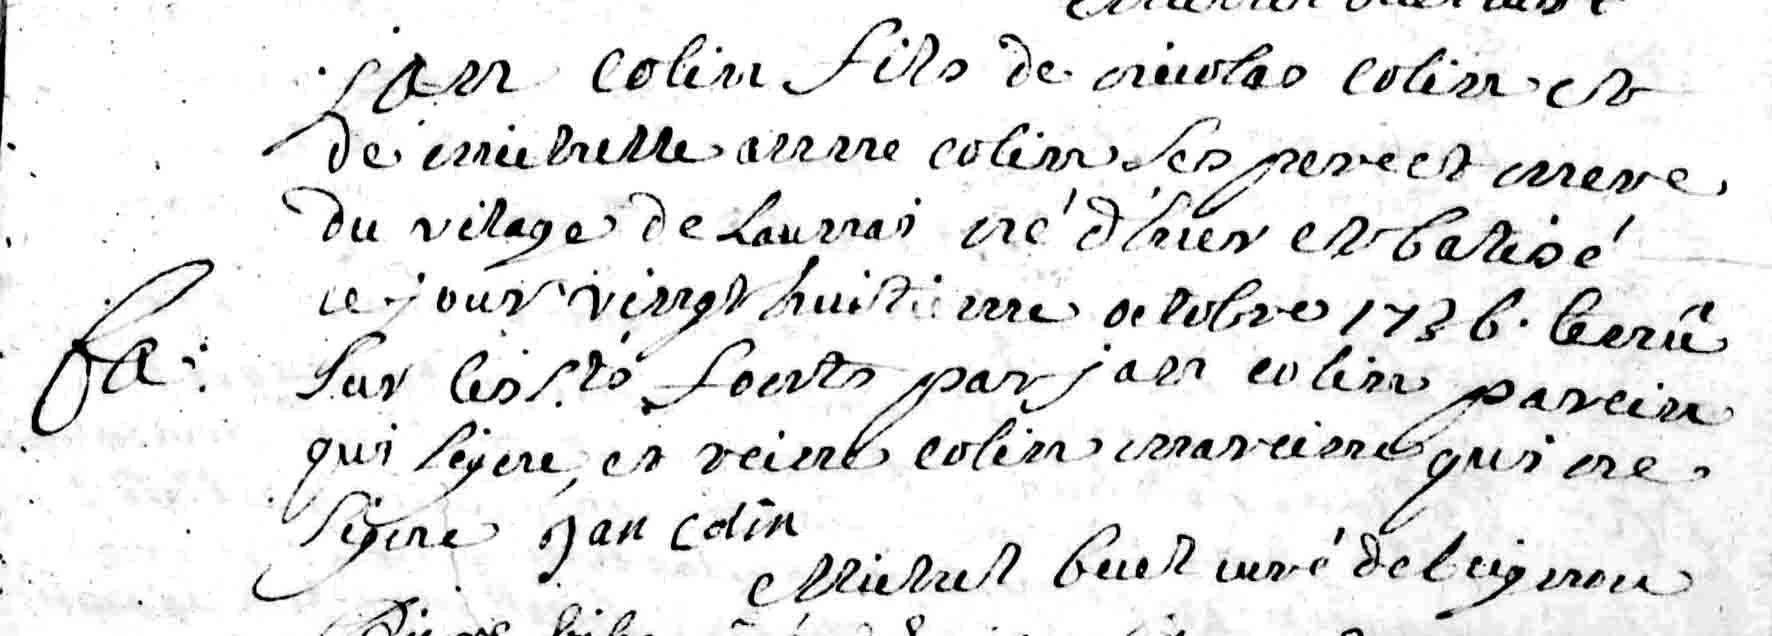 jan colin fils de nicolas colin et
de michelle anne colin ses pere et mere
du vilage de Launai né d'hier et batisé
ce jour vingt huitieme octobre 1736. tenû
sur les s.ts fonts par jan colin parein
qui signe, et reine colin mareine qui ne
signe jan colin
Michel buet curé de